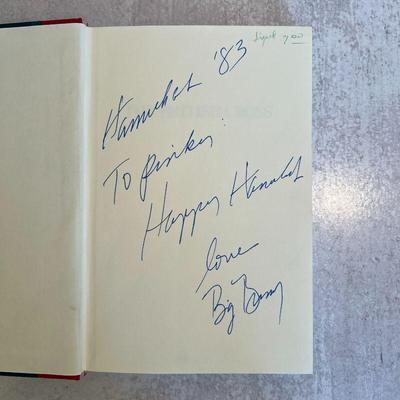 Signed 7.00
Hanukah '83
To Pinky:
Happy Hanukah
love
Big Benny